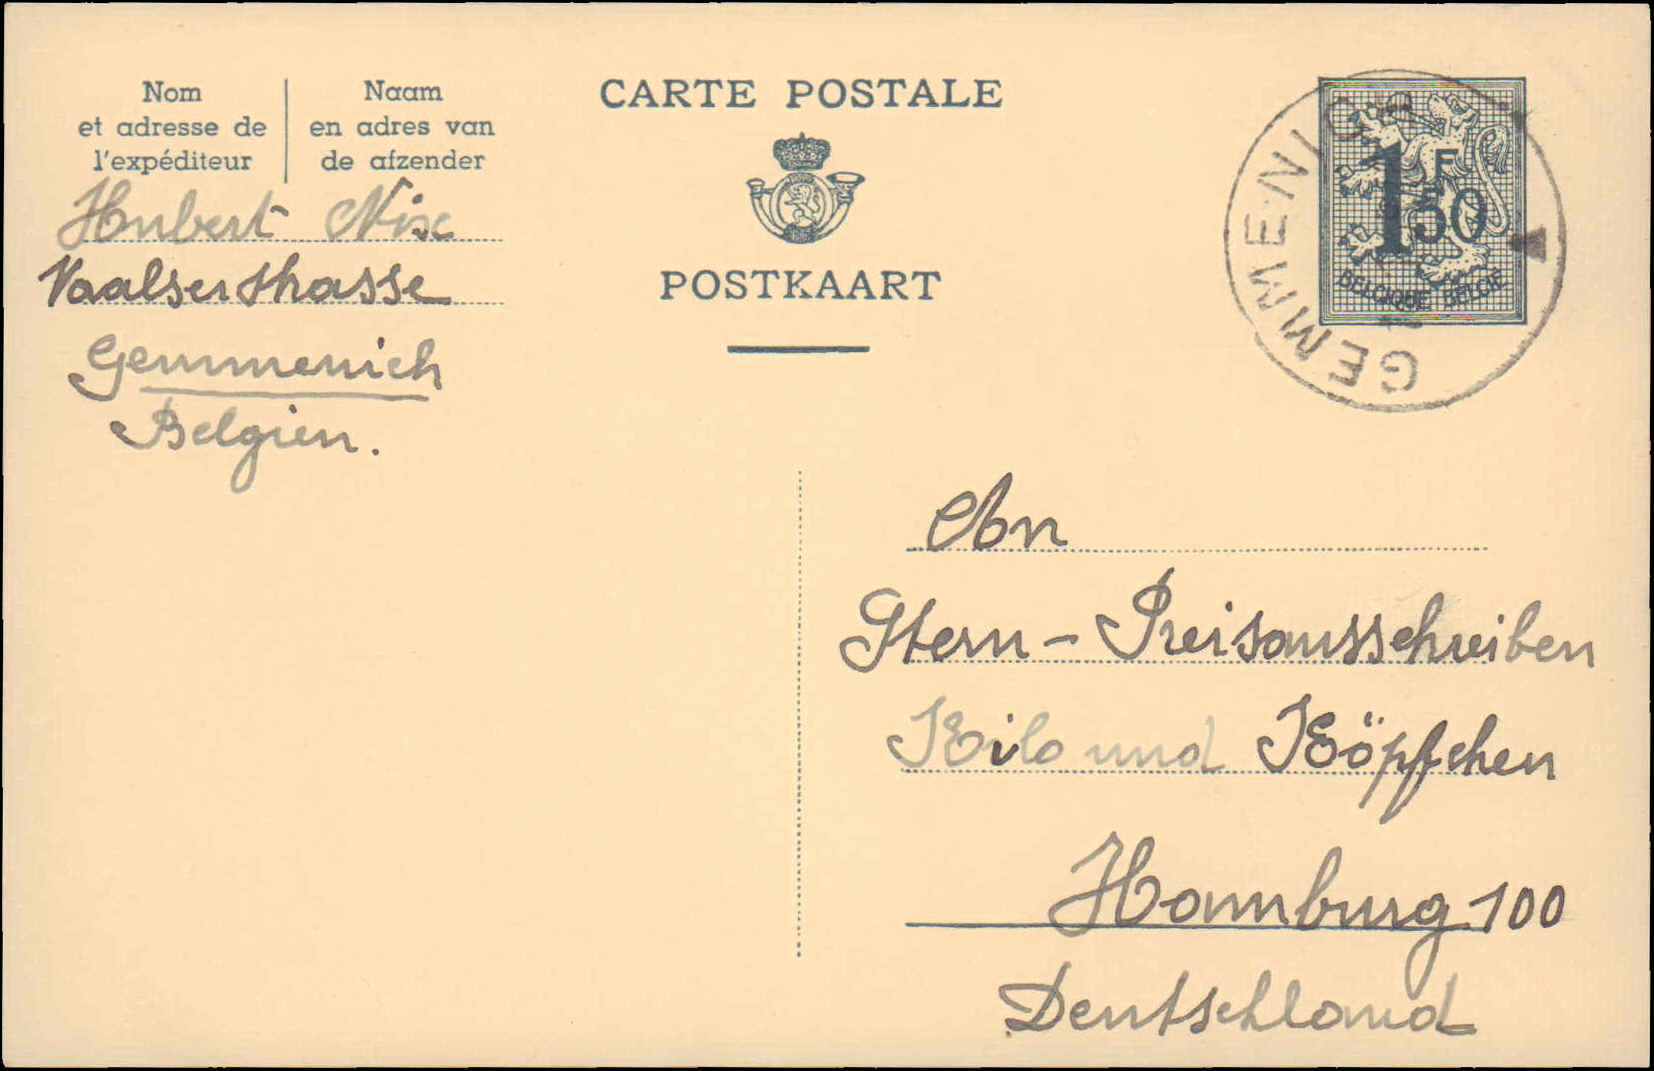 Nom
et adresse de
l'expéditeur
Naam
en adres van
de afzender
Hubert Nix
Vaalserstrasse
Gemmenich
Belgien.
CARTE POSTALE
POSTKAART
GEMMENICH
1F50
BELGIQUE BELGIË
An
Stern - Preisausschreiben
Kilo und Köpfchen
Hamburg 100
Deutschland